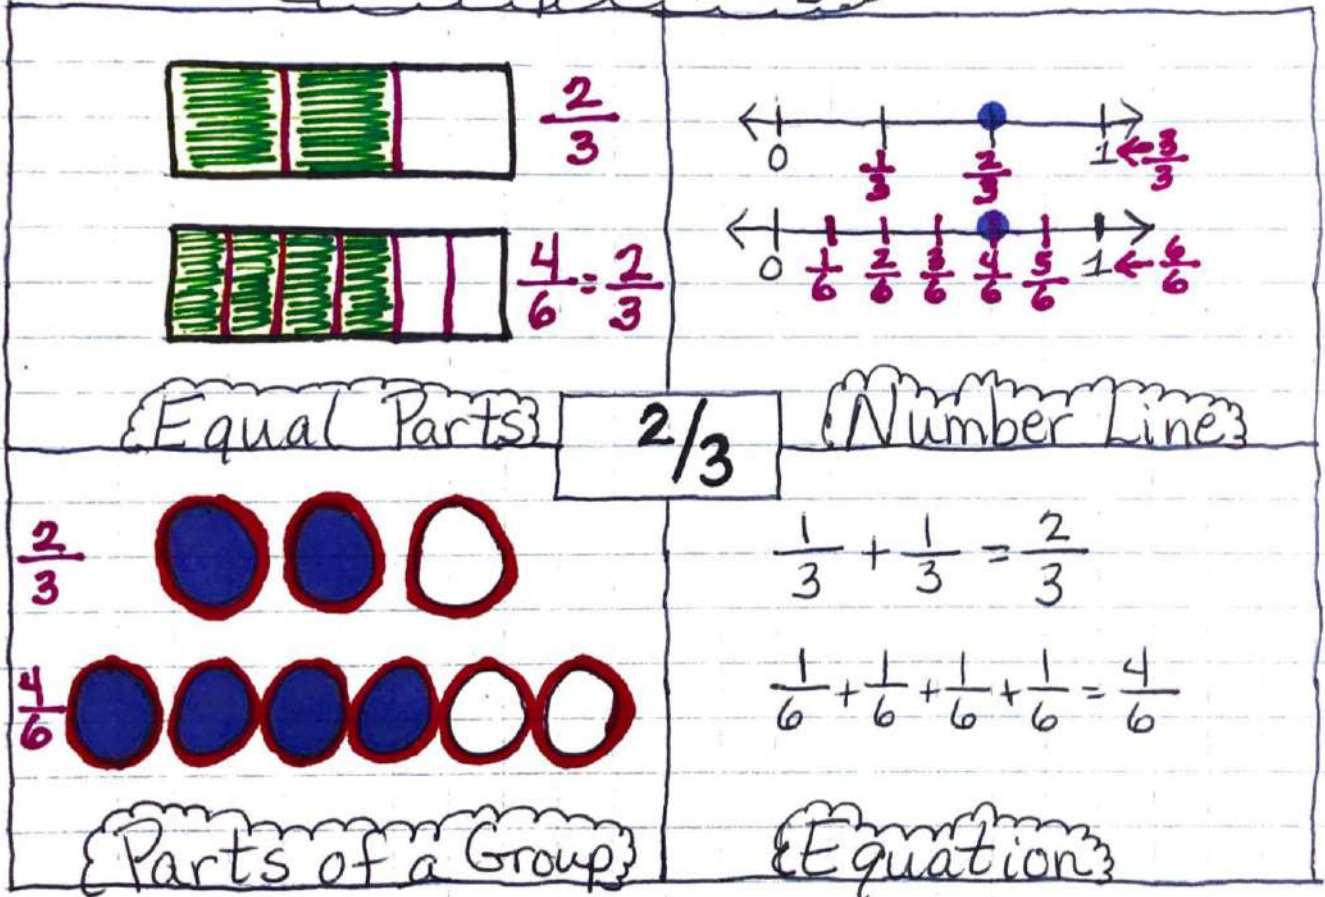 2/3
4/6 = 2/3
Equal Parts
0 1/3 2/3 1 ← 3/3
0 1/6 2/6 3/6 4/6 5/6 1 ← 6/6
Number Line
2/3
2/3
4/6
Parts of a Group
1/3 + 1/3 = 2/3
1/6 + 1/6 + 1/6 + 1/6 = 4/6
Equation